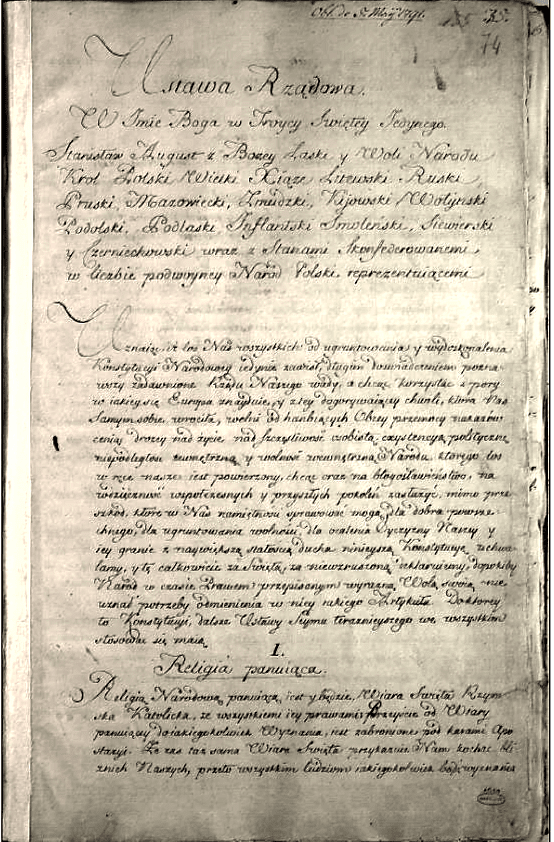 Obl. de 5. Maij 1791.
135 35.
74
Ustawa Rządowa.
W Imie Boga w Troycy Swiętey Jedynego.
Stanisław August z Bozey Łaski y Woli Narodu
Krol Polski Wielki Xiąze Litewski Ruski
Pruski, Mazowiecki, Zmudzki, Kijowski Wołynski
Podolski, Podlaski Inflantski Smoleński, Siewierski
y Czerniechowski wraz z Stanami Skonfederowanemi
w liczbie podwoyney Naród Polski reprezentuiącemi
Uznaiąc, iż los Nas wszystkich od ugruntowania y wydoskonalenia
Konstytucyi Narodowey iedynie zawisł, długim doswiadczeniem pozna-
wszy zadawnione Rządu Naszego wady, a chcąc korzystać z pory
w iakiey się Europa znayduie, y z tey dogorywaiący chwili, która Nas
samym sobie wrociła, wolni od hanbiących Obcey przemocy nakazów
ceniąc drozey nad zycie, nad szczęsliwosć osobistą, exystencyą polityczną
niepodległosc zewnętrzną y wolność wewnętrzną Narodu, ktorego los
w ręce nasze iest powierzony, chcąc oraz na błogosławieństwo, na
wdzięczność wspołczesnych y przyszłych pokolen zasłużyć, mimo prze-
szkód, które w Nas namiętności sprawować mogą, dla dobra powsze-
chnego, dla ugruntowania wolności, dla ocalenia Oyczyzny Naszey y
iey granic z naywiększą stałością ducha ninieyszą Konstytucyę uchwa-
lamy, y tę całkowicie za Swiętą, za niewzruszoną deklaruiemy, dopokiby
Naród w czasie Prawem przepisanym wyrazną Wolą swoią nie
uznał potrzeby odmienienia w niey iakiego Artykułu. Do ktorey
to Konstytucyi, dalsze Ustawy Seymu teraznieyszego we wszystkim
stosować się maią
I.
Religia panuiąca.
Religią Narodową panuiącą, iest y będzie Wiara Swięta Rzym-
ska Katolicka, ze wszystkiemi iey prawami; Przeyście od Wiary
panuiącey do iakiegokolwiek Wyznania, iest zabronione pod karami Apo-
stazyi. Ze zas taz sama Wiara Swięta przykazuie Nam kochać bli-
znich Naszych, przeto wszystkim ludziom iakiegokolwiek bądz wyznania